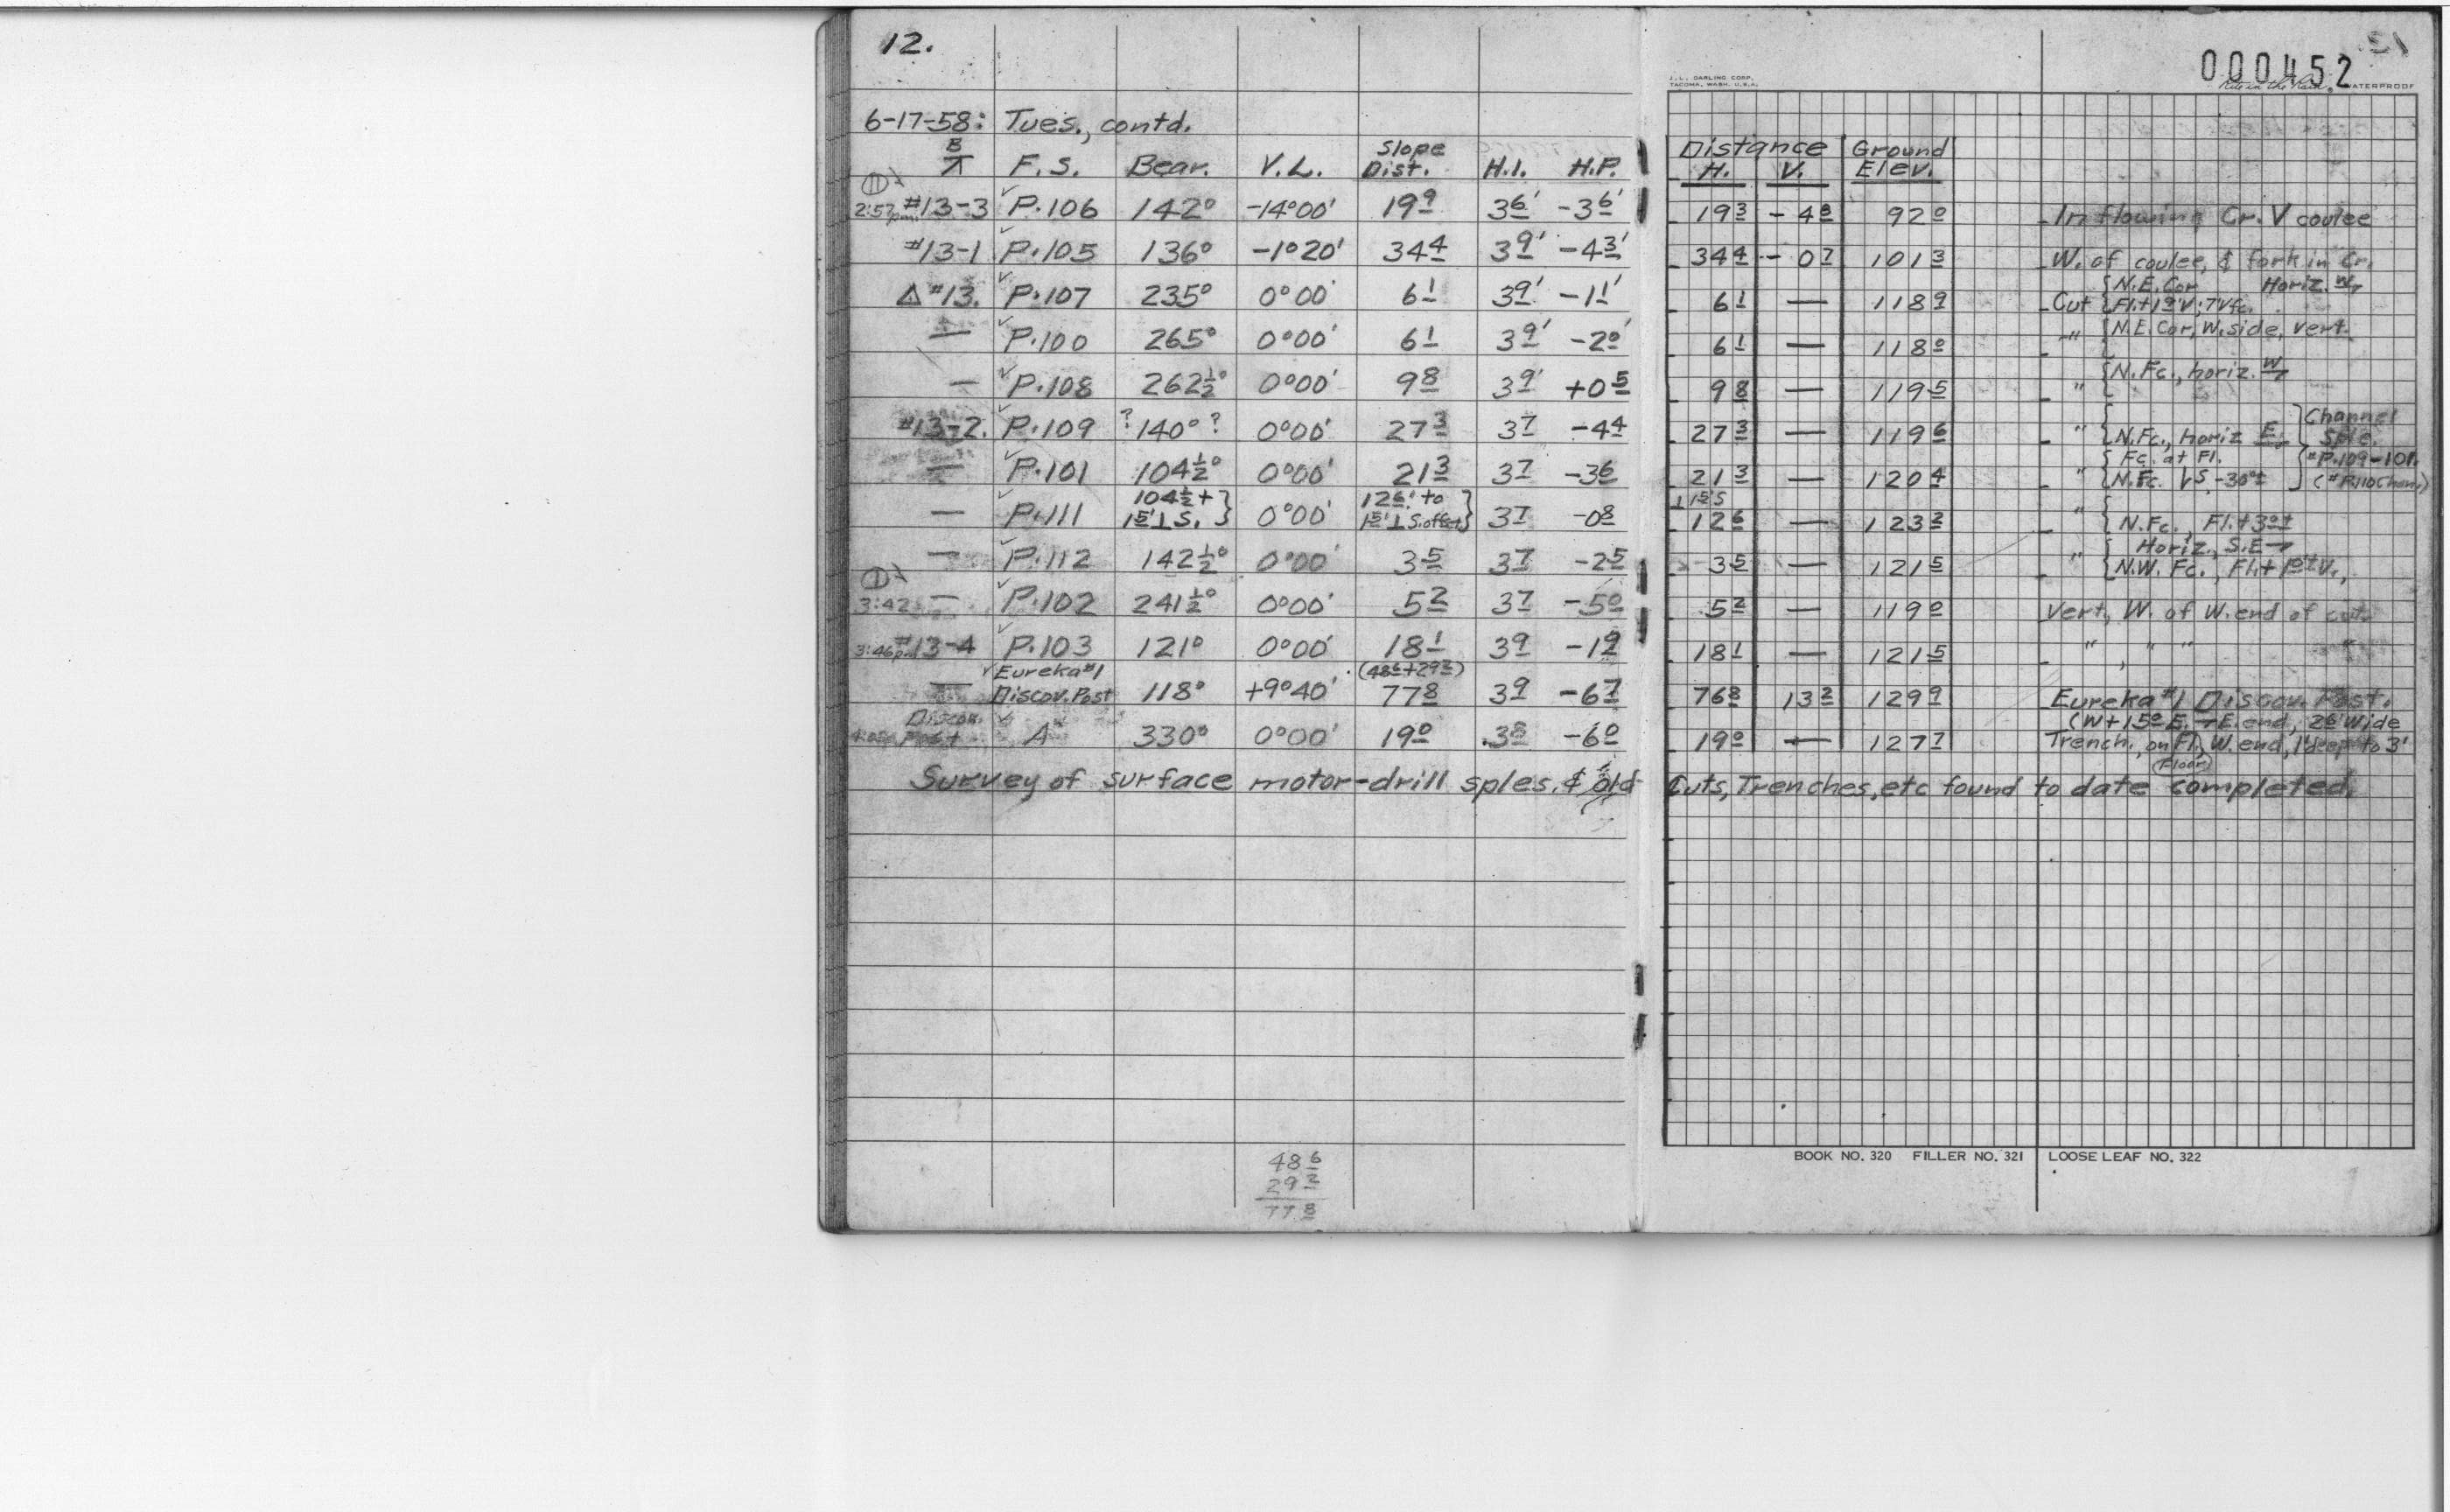 12.
000452
J. L. DARLING CORP.
TACOMA, WASH. U.S.A.
Rite in the Rain. WATERPROOF
6-17-58: Tues., contd.
B/⊼ F.S. Bear. V.L. Slope Dist. H.I. H.P. Distance H. V. Ground Elev.
2:57 pm. #13-3 P.106 142° -14°00' 19 9 3 6' -3 6' 19 3 - 4 8 92 0 In flowing Cr. V coulee
#13-1 P.105 136° -1°20' 34 4 3 9' -4 3' 34 4 - 0 7 101 3 W. of coulee, & fork in Cr.
△ #13. P.107 235° 0°00' 6 1 3 9' -1 1' 6 1 — 118 9 Cut { N.E. Cor Horiz. W.
— P.100 265° 0°00' 6 1 3 9' -2 0' 6 1 — 118 0 " { N.E. Cor, W. side, vert.
— P.108 262½° 0°00' 9 8 3 9' +0 5 9 8 — 119 5 " { N. Fc., horiz. W
#13-2. P.109 ? 140° ? 0°00' 27 3 3 7 -4 4 27 3 — 119 6 " { N. Fc., horiz E } Channel Sple. #P.109-101.
— P.101 104½° 0°00' 21 3 3 7 -3 6 21 3 — 120 4 " { Fc. at Fl. N. Fc. S -30°± (#P.110 Chan.)
— P.111 104½ + 1 5' ⊥ S. } 0°00' 12 6' to 1 5' ⊥ S. offset } 3 7 -0 8 ⊥ 1 5' S 12 6 — 123 2 " { N. Fc., Fl. + 3 0 ±
— P.112 142½° 0°00' 3 5 3 7 -2 5 3 5 — 121 5 " { Horiz., S.E → N.W. Fc., Fl. + 1 0 ± V.,
3:42 — P.102 241½° 0°00' 5 2 3 7 -5 0 5 2 — 119 0 Vert., W. of W. end of cut.
3:46 pm #13-4 P.103 121° 0°00' 18 1 3 9 -1 9 18 1 — 121 5 " , " " "
— Eureka #1 Discov. Post 118° +9°40' (48 6 + 29 2) 77 8 3 9 -6 7 76 8 13 2 129 9 Eureka #1 Discov. Post.
Discov. Post A 330° 0°00' 19 0 3 8 -6 0 19 0 — 127 7 (W + 15 0 E. → E. end, 2 6' Wide
Trench, on Fl., W. end, 1' deep to 3'
(Floor)
Survey of surface motor-drill sples. & "old" Cuts, Trenches, etc found to date completed.
48 6
29 2
77 8
BOOK NO. 320 FILLER NO. 321 LOOSE LEAF NO. 322